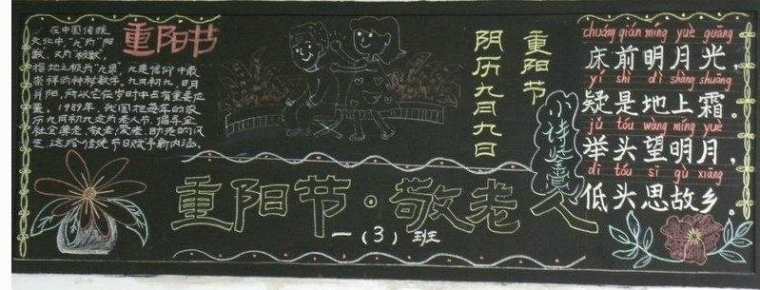 重阳节
在中国传统
文化中，"九"为"阳
数，又为"极数，
指地之极为"九泉，九是信仰中最
崇拜的神秘数字，九月初九，日月
并阳，所以它在岁时中占有重要位
置。1989年，我国把每年的农
历九月初九定为老人节，倡导全
社会尊老、敬老、爱老、助老的风
重阳节
阴历九月九日
小诗鉴赏
重阳节·敬老人
一（3）班
chuáng qián míng yuè guāng
床前明月光，
yí shì dì shàng shuāng
疑是地上霜。
jǔ tóu wàng míng yuè
举头望明月，
dī tóu sī gù xiāng
低头思故乡。